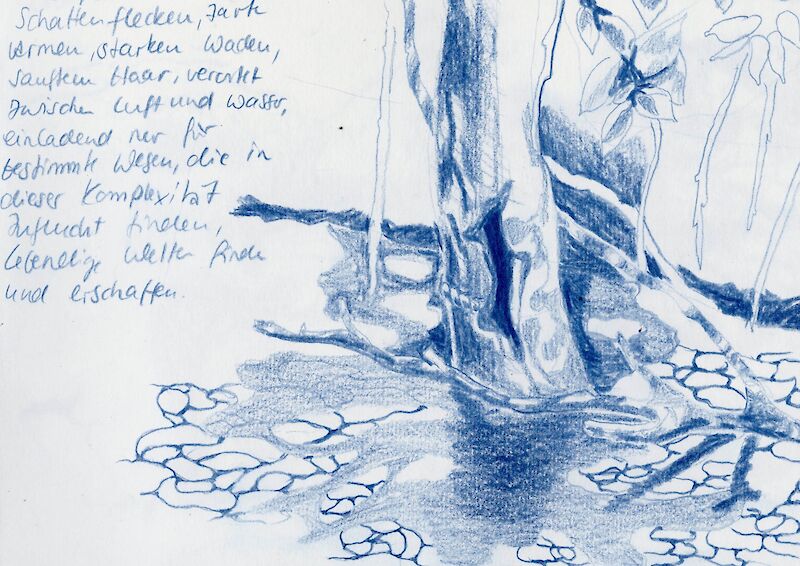 Schattenflecken, zarte
Armen, starken Waden,
sanftem Haar, verortet
zwischen Luft und Wasser,
einladend nur für
bestimmte Wesen, die in
dieser Komplexität
Zuflucht finden,
lebendige Welten finden
und erschaffen.